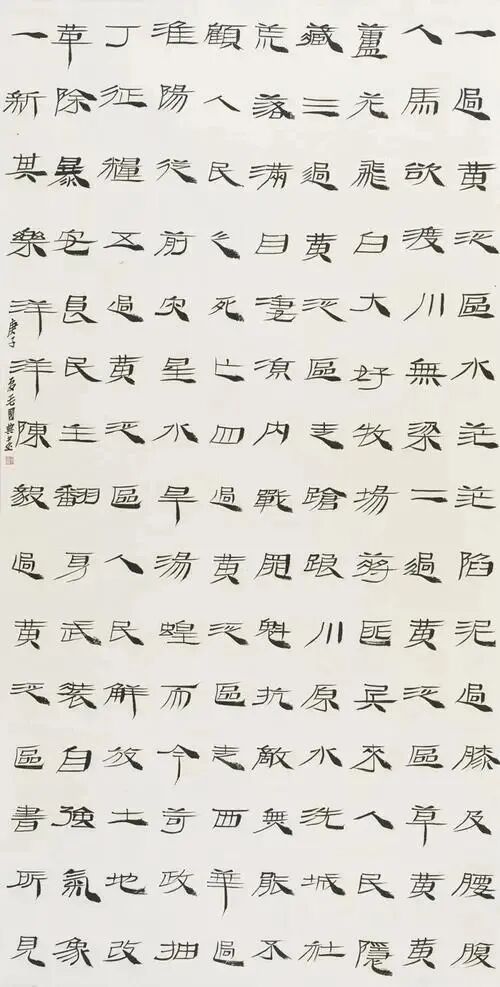 一過黄泛區水茫茫陷泥過膝及腰腹
人馬欲渡川無梁二過黄泛區草黄黄
蘆花飛白大好牧場葬匪兵來人民隱
藏三過黄泛區走蹌踉川原水洗城社
荒落滿目凄凉内戰罪魁抗敵無賬不
顧人民之死亡四過黄泛區走西華過
淮陽從前灾星水旱湯蝗而今苛政抽
丁征糧五過黄泛區人民解放土地改
革除暴安良民主翻身武裝自強氣象
一新其樂洋洋陳毅過黄泛區書所見
庚子夏毛國典書